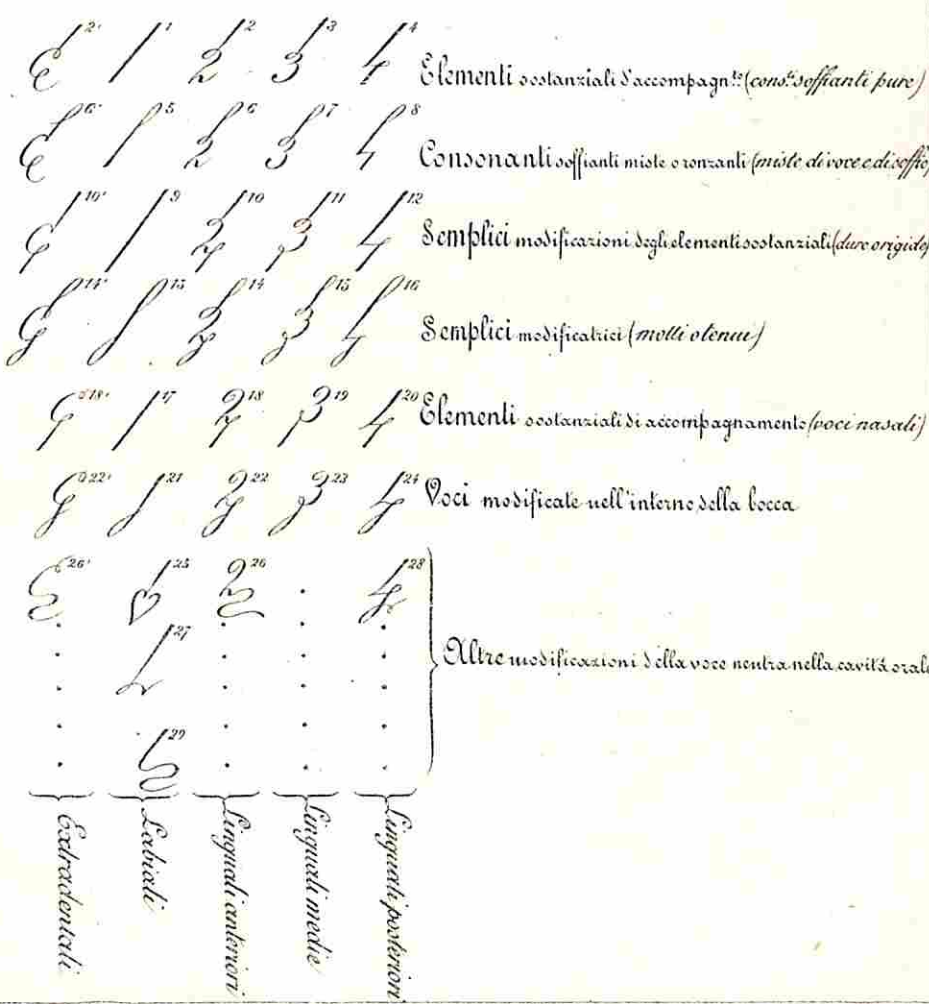 2' 1 2 3 4 Elementi sostanziali d'accompagn.to (cons.ti soffianti pure)
6' 5 6 7 8 Consonanti soffianti miste o ronzanti (miste di voce e di soffio)
10' 9 10 11 12 Semplici modificazioni degli elementi sostanziali (dure o rigide)
14' 13 14 15 16 Semplici modificatrici (molli o tenui)
18' 17 18 19 20 Elementi sostanziali di accompagnamento (voci nasali)
22' 21 22 23 24 Voci modificate nell'interno della bocca
26' 25 26 28
27
Altre modificazioni della voce neutra nella cavità orale
29
Extradentali
Labiali
Linguali anteriori
Linguali medie
Linguali posteriori